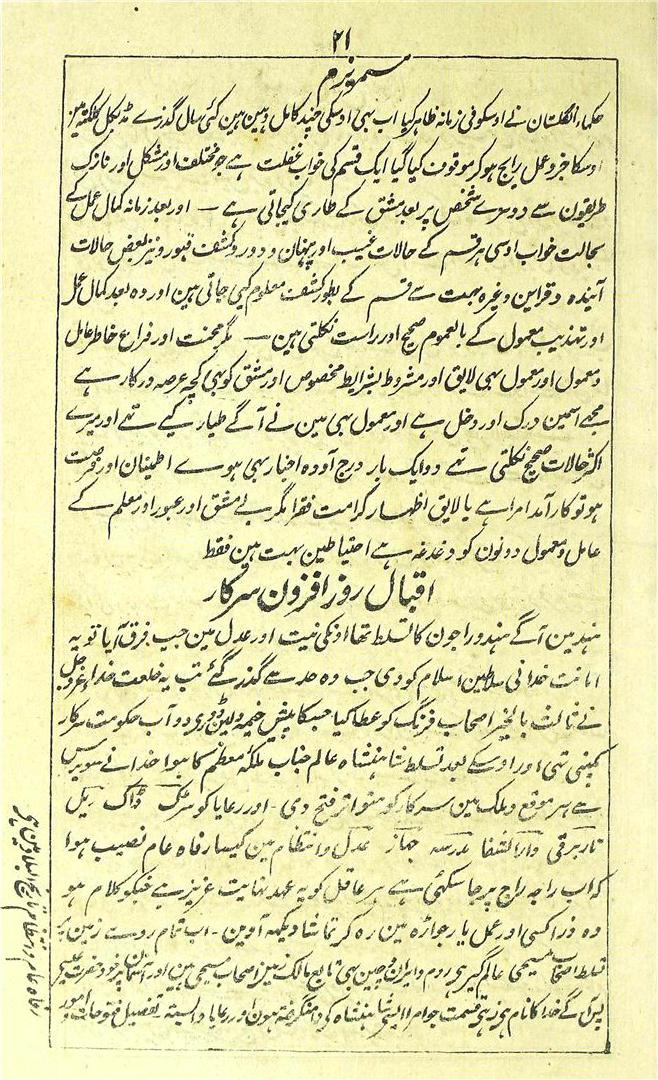 ۲۱
مسمریزم
حکماء انگلستان نے اوسکو فی زمانہ ظاہر کیا اب بہی اوسکی چند کامل وہین ہین کئی سال گذرے مڈیکل کلکتہ مین
اوسکا جزو عمل رایج ہو کر موقوف کیا گیا ایک قسم کی خواب غفلت ہے جو مختلف اور مشکل اور نازک
طریقون سے دوسرے شخص پر بعد مشق کے طاری کیجاتی ہے ـــ اور بعد زمانہ کمال عمل کے
بحالت خواب اوسی ہر قسم کے حالات غیب اور پنہان و دور و کشف قبور و نیز بعض حالات
آیندہ و قراین وغیرہ بہت سے قسم کے بطور کشف معلوم کیی جاتی ہین اور وہ بعد کمال عمل
اور تہذیب معمول کے بالعموم صحیح اور راست نکلتی ہین ـــ مگر محنت اور فراغ خاطر عامل
و معمول اور معمول بہی لایق اور مشروط بشرایط مخصوص اور مشق کو بہی کچہ عرصہ درکار ہے
مجہے اسمین درک اور دخل ہے اور معمول بہی مین نے آگے طیار کیے تہے اور میرے
اکثر حالات صحیح نکلتی تہے دو ایک بار درج آودہ اخبار بہی ہوے اطمینان اور فرصت
ہو تو کارآمد امر ہے یا لایق اظہار کرامت فقرا مگر بے مشق اور عبور اور معلم کے
عامل و معمول دونون کو دغدغہ ہے احتیاطین بہت ہین فقط
اقبال روز افزون سرکار
ہند مین آگے ہندو راجون کا تسلط تہا اونکی نیت اور عدل مین جب فرق آیا تو یہ
امانت خدا نی سلاطین اسلام کو دی جب وہ حد سے گذر گئے تب یہ خلعت خداے عزوجل
نے ثالث بالخیر اصحاب فرنگ کو عطا کیا جسکا پیش خیمہ ولین ڈوری دو آب حکومت سرکار
کمپنی تہی اور اوسکے بعد تسلط شاہنشاہ عالم جناب ملکہ معظم کا ہوا خدا نے سو برس
سے ہر موقع و ملک مین سرکار کو متواتر فتح دی ـ اور رعایا کو سڑک ڈاک ریل
تار برقی دار الشفا مدرسہ جہاز عدل و انتظام مین کیسا رفاہ عام نصیب ہوا
کہ اب راجہ راج پرجا سکہی ہے ہر عاقل کو یہ عہد نہایت عزیز ہے جنکو کلام ہو
وہ ذرا کسی اور عمل یا رجواڑہ مین رہ کر تماشا دیکہہ آوین ـ اب تمام روے زمین پر
تسلط اصحاب مسیحی عالم گیر ہی روم و ایران و چین بہی تابع مالک نیز اصحاب مسیحی ہین اور آسمان پر خود حضرت عیسی
پس آگے خدا کا نام ہی زہی قسمت جو امرا ایسی شاہنشاہ کو دامنگرفتہ ہون اور رعایا وابستہ تفصیل فتوحات و امور
رفاہ عام و انتظام تاریخ اسلام مین ہی